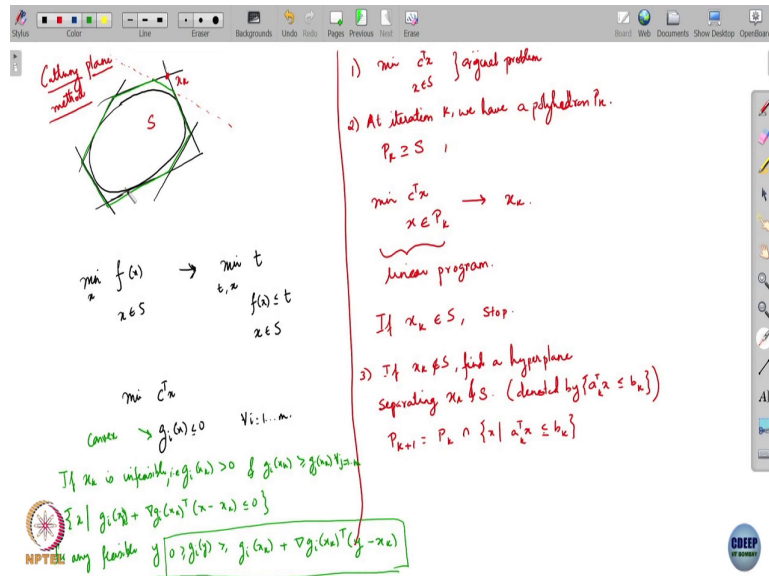 Stylus
Color
Line
Eraser
Backgrounds
Undo
Redo
Pages
Previous
Next
Erase
Board
Web
Documents
Show Desktop
OpenBoard
Cutting plane
method
S
x_k
min f(x) → min t
x t, x
x ∈ S f(x) ≤ t
x ∈ S
min cᵀx
Convex → g_i(x) ≤ 0 ∀i=1...m.
If x_k is infeasible, i.e. g_i(x_k) > 0 & g_i(x_k) ≥ g_j(x_k) ∀j=1..m
{x | g_i(x_k) + ∇g_i(x_k)ᵀ(x - x_k) ≤ 0}
any feasible y 0 ≥ g_i(y) ≥ g_i(x_k) + ∇g_i(x_k)ᵀ(y - x_k)
1) min cᵀx } original problem
x ∈ S
2) At iteration k, we have a polyhedron P_k.
P_k ⊇ S ,
min cᵀx → x_k.
x ∈ P_k
linear program.
If x_k ∈ S, Stop.
3) If x_k ∉ S, find a hyperplane
separating x_k & S. (denoted by {a_kᵀx ≤ b_k})
P_{k+1} = P_k ∩ {x | a_kᵀx ≤ b_k}
NPTEL
CDEEP
IIT BOMBAY